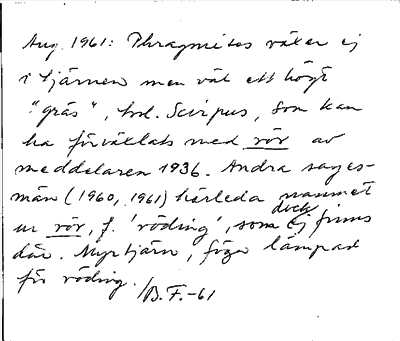 Aug. 1961: Phragmites växer ej
i tjärnen men väl ett högt
"gräs", trol. Scirpus, som kan
ha förväxlats med rör av
meddelaren 1936. Andra sages-
män (1960, 1961) härleda namnet
ur rör, f. 'röding', som dock ej finns
där. Myrtjärn, föga lämpad
för röding. /B.F.-61